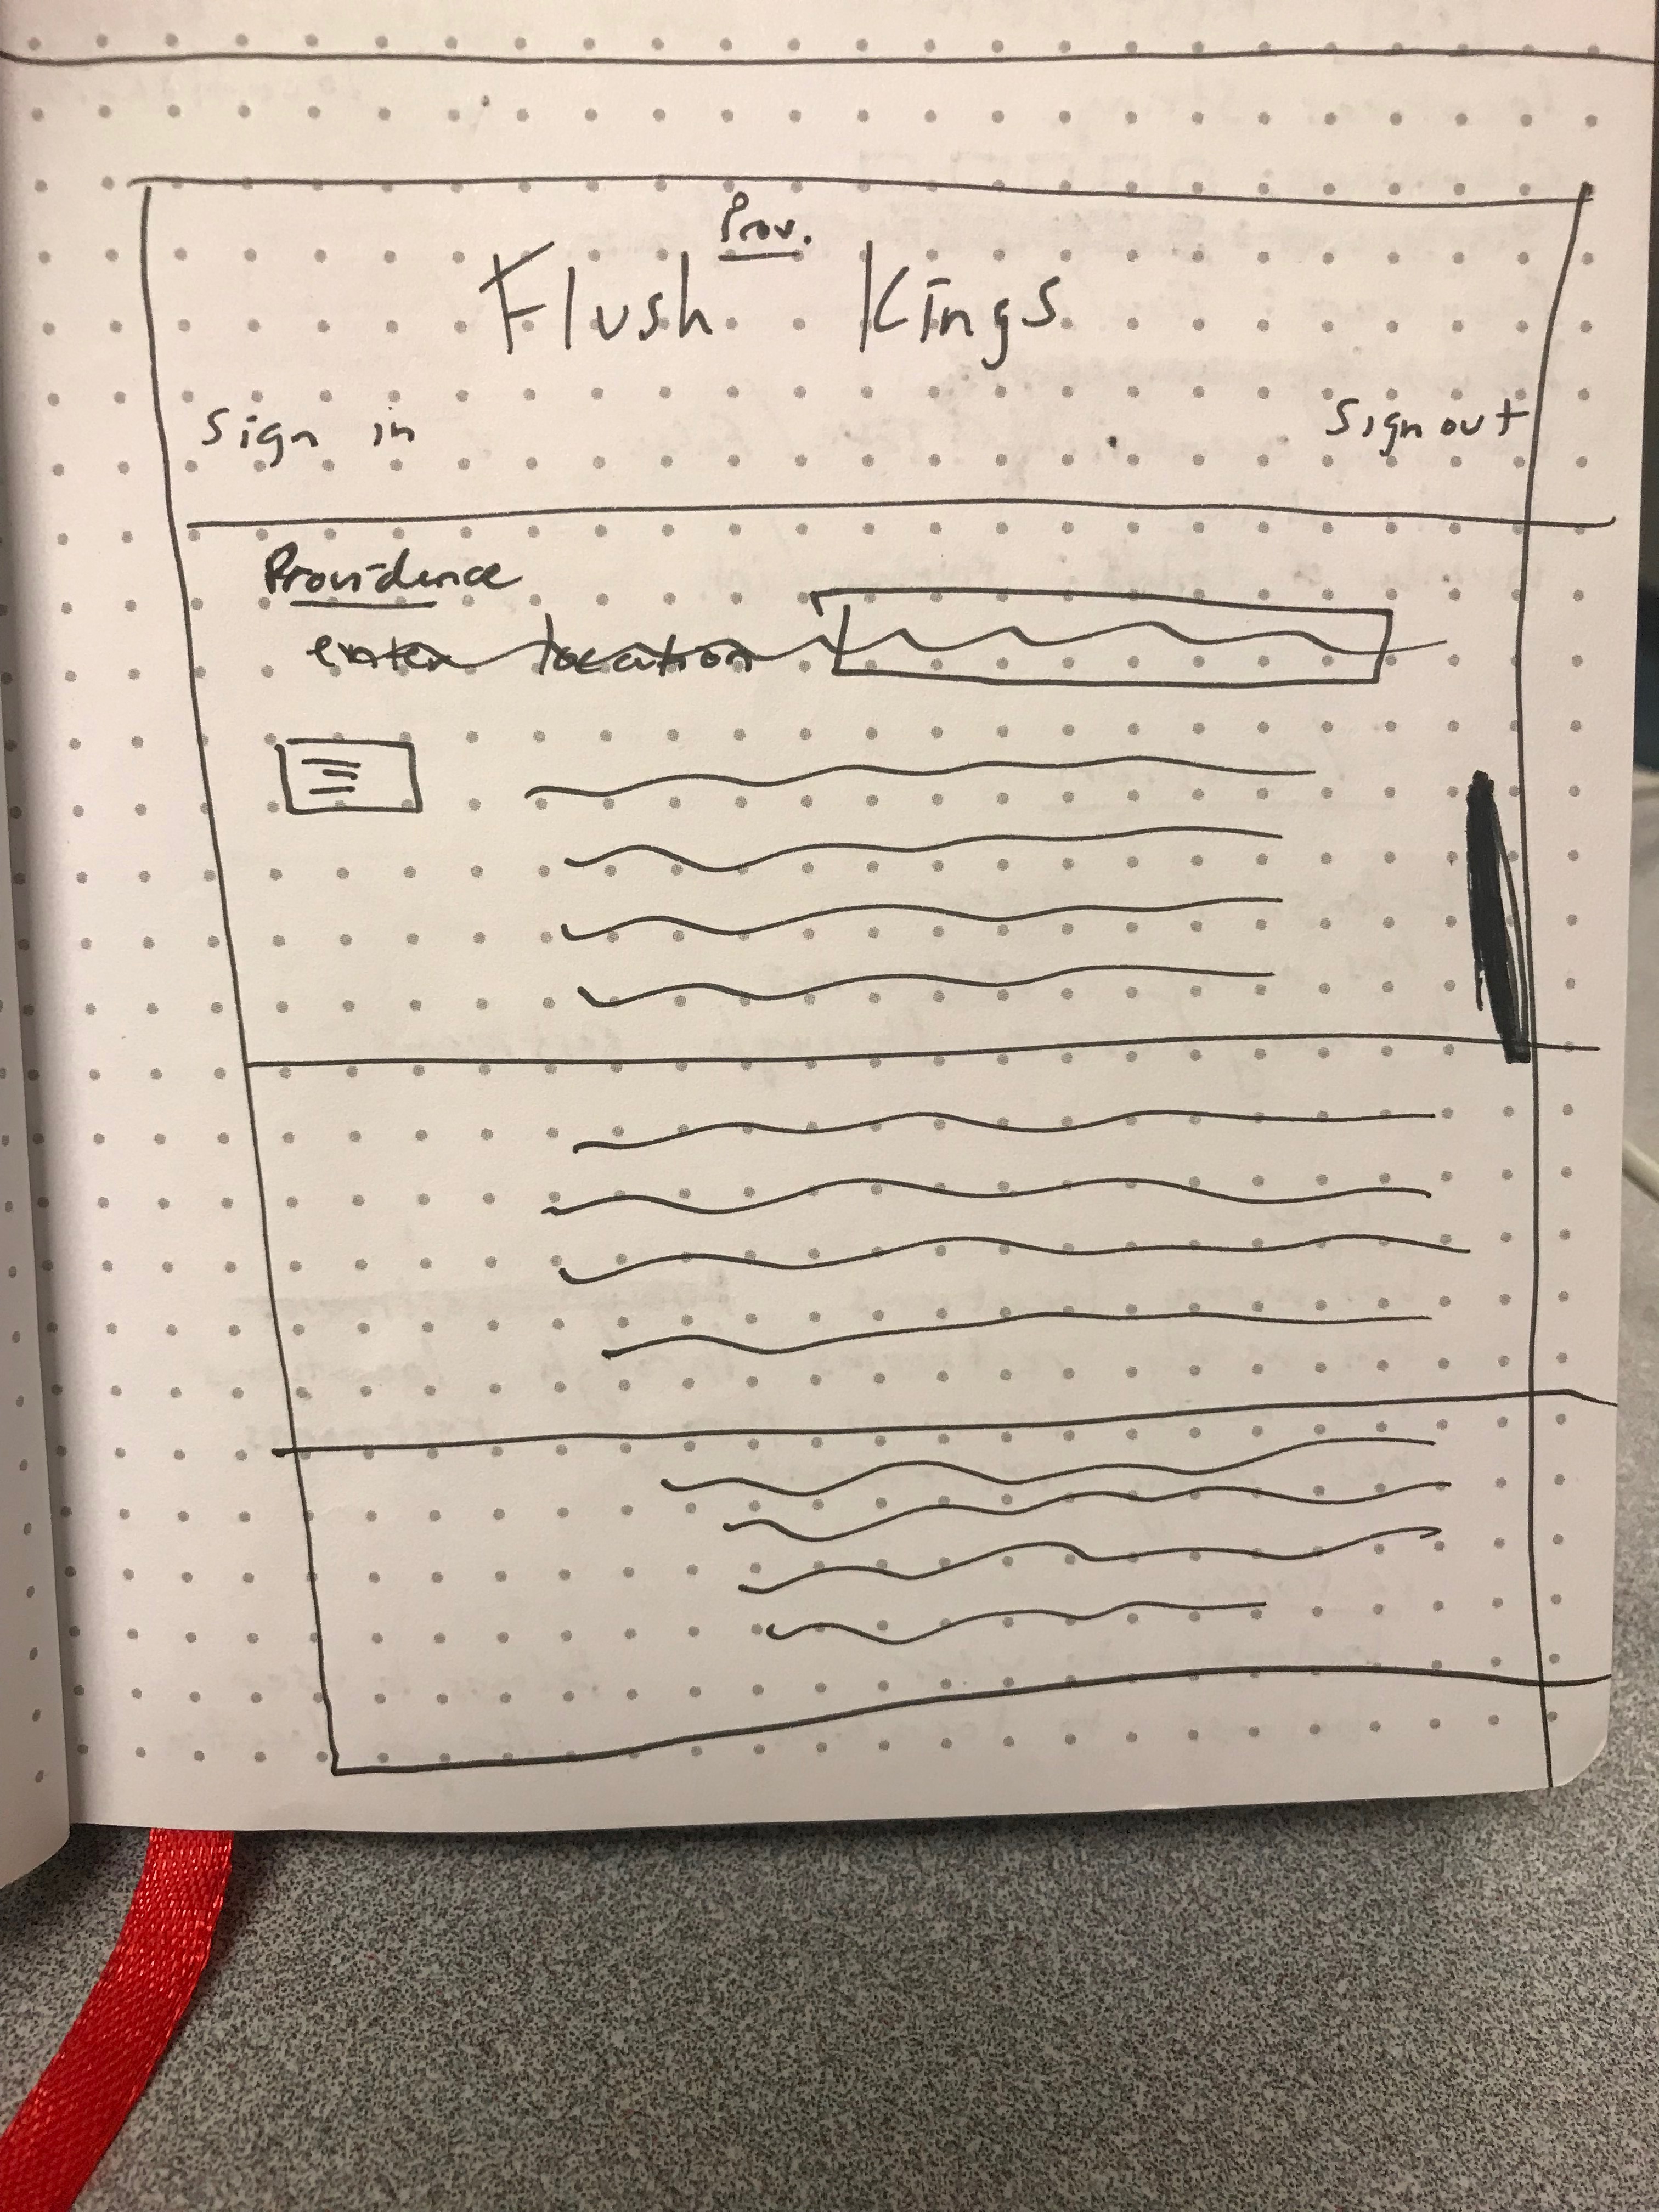 Prov.
Flush Kings
Sign in
Sign out
Providence
enter location